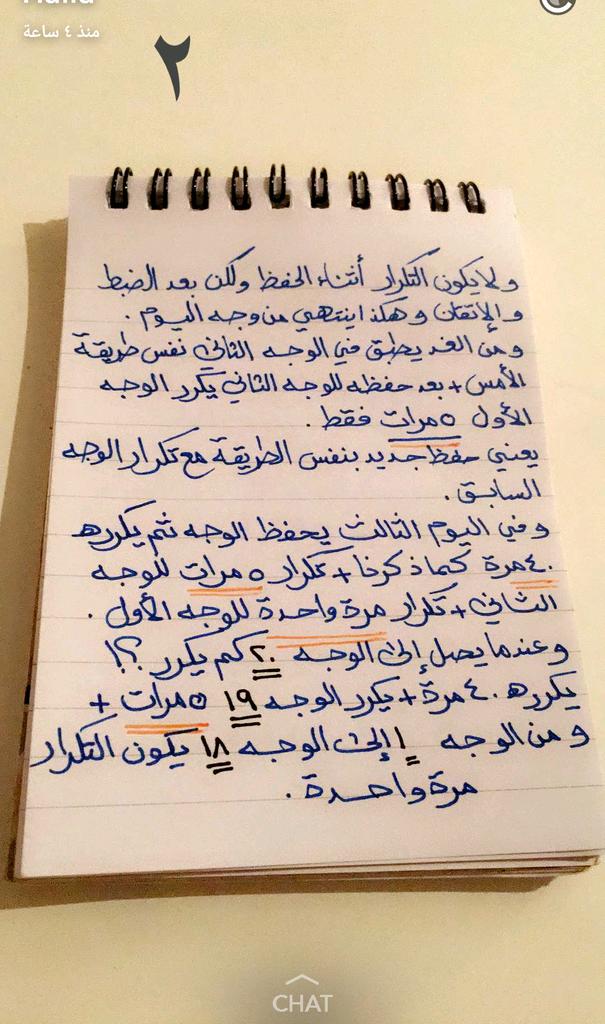 منذ ٤ ساعة
٢
ولا يكون التكرار أثناء الحفظ ولكن بعد الضبط
والإتقان وهكذا ينتهي من وجه اليوم .
ومن الغد يطبق في الوجه الثاني نفس طريقة
الأمس + بعد حفظه للوجه الثاني يكرر الوجه
الأول ٥ مرات فقط .
يعني حفظ جديد بنفس الطريقة مع تكرار الوجه
السابق .
وفي اليوم الثالث يحفظ الوجه ثم يكرره
٤٠ مرة كما ذكرنا + تكرار ٥ مرات للوجه
الثاني + تكرار مرة واحدة للوجه الأول .
وعندما يصل إلى الوجه ٢٠ كم يكرر ؟!
يكرره ٤٠ مرة + يكرر الوجه ١٩ ٥ مرات +
ومن الوجه ١ إلى الوجه ١٨ يكون التكرار
مرة واحدة .
CHAT